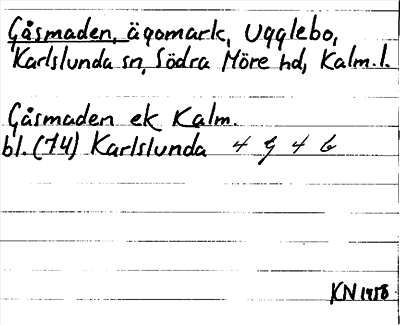 Gåsmaden, ägomark, Ugglebo,
Karlslunda sn, Södra Möre hd, Kalm.l.
Gåsmaden ek Kalm.
bl. (74) Karlslunda 4 g 4 b
KN 1958